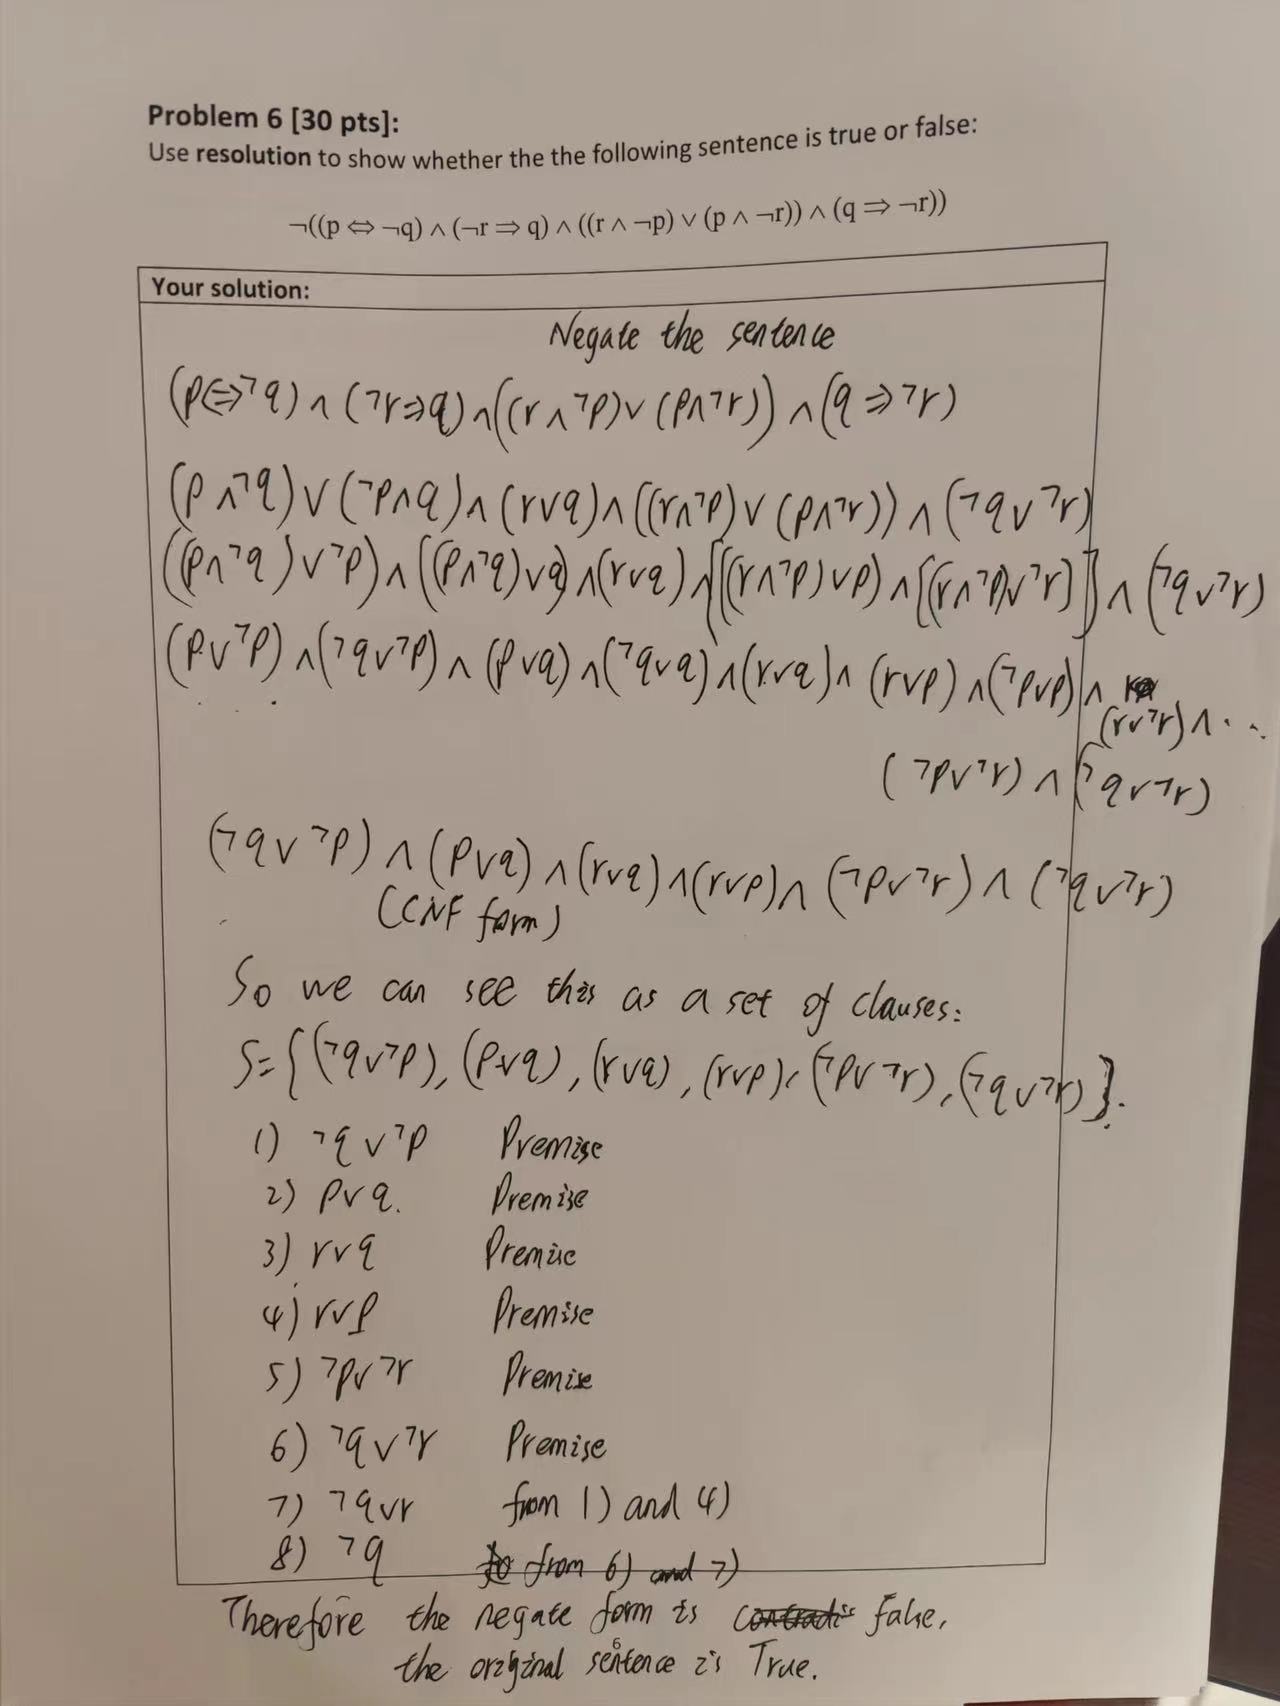 Problem 6 [30 pts]:
Use resolution to show whether the the following sentence is true or false:
¬((p ⇔ ¬q) ∧ (¬r ⇒ q) ∧ ((r ∧ ¬p) ∨ (p ∧ ¬r)) ∧ (q ⇒ ¬r))
Your solution:
Negate the sentence
(p⇔¬q) ∧ (¬r⇒q) ∧ ((r∧¬p)∨(p∧¬r)) ∧ (q⇒¬r)
(p∧¬q)∨(¬p∧q)∧(r∨q)∧((r∧¬p)∨(p∧¬r))∧(¬q∨¬r)
((p∧¬q)∨¬p)∧((p∧¬q)∨q)∧(r∨q)∧[[(r∧¬p)∨p)∧[(r∧¬p)∨¬r]]∧(¬q∨¬r)
(p∨¬p)∧(¬q∨¬p)∧(p∨q)∧(¬q∨q)∧(r∨q)∧(r∨p)∧(¬p∨p)∧
(r∨¬r)∧...
(¬p∨¬r)∧(¬q∨¬r)
(¬q∨¬p)∧(p∨q)∧(r∨q)∧(r∨p)∧(¬p∨¬r)∧(¬q∨¬r)
(CNF form)
So we can see this as a set of clauses:
S={(¬q∨¬p),(p∨q),(r∨q),(r∨p),(¬p∨¬r),(¬q∨¬r)}.
1) ¬q∨¬p Premise
2) p∨q. Premise
3) r∨q Premise
4) r∨p Premise
5) ¬p∨¬r Premise
6) ¬q∨¬r Premise
7) ¬q∨r from 1) and 4)
8) ¬q from 6) and 7)
Therefore the negate form is false,
the original sentence is True.
6